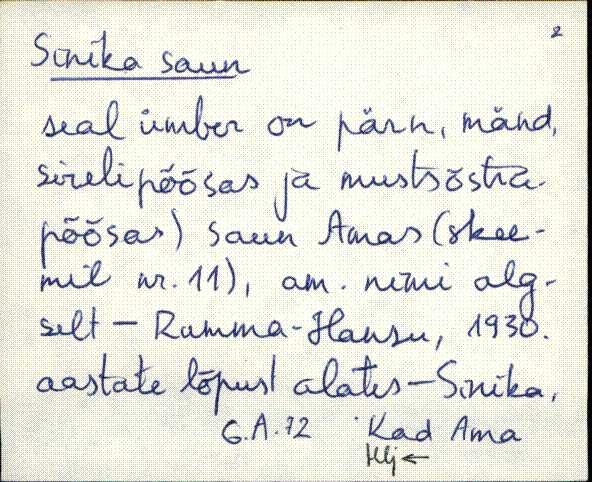 2
Sinika saun
seal ümber on pärn, mänd,
sirelipõõsas ja mustsõstra-
põõsas) saun Amas (skee-
mil nr. 11), am. nimi alg-
selt — Rumma-Hansu, 1930.
aastate lõpust alates — Sinika.
G.A. 72 Kad Ama
Hlj ←